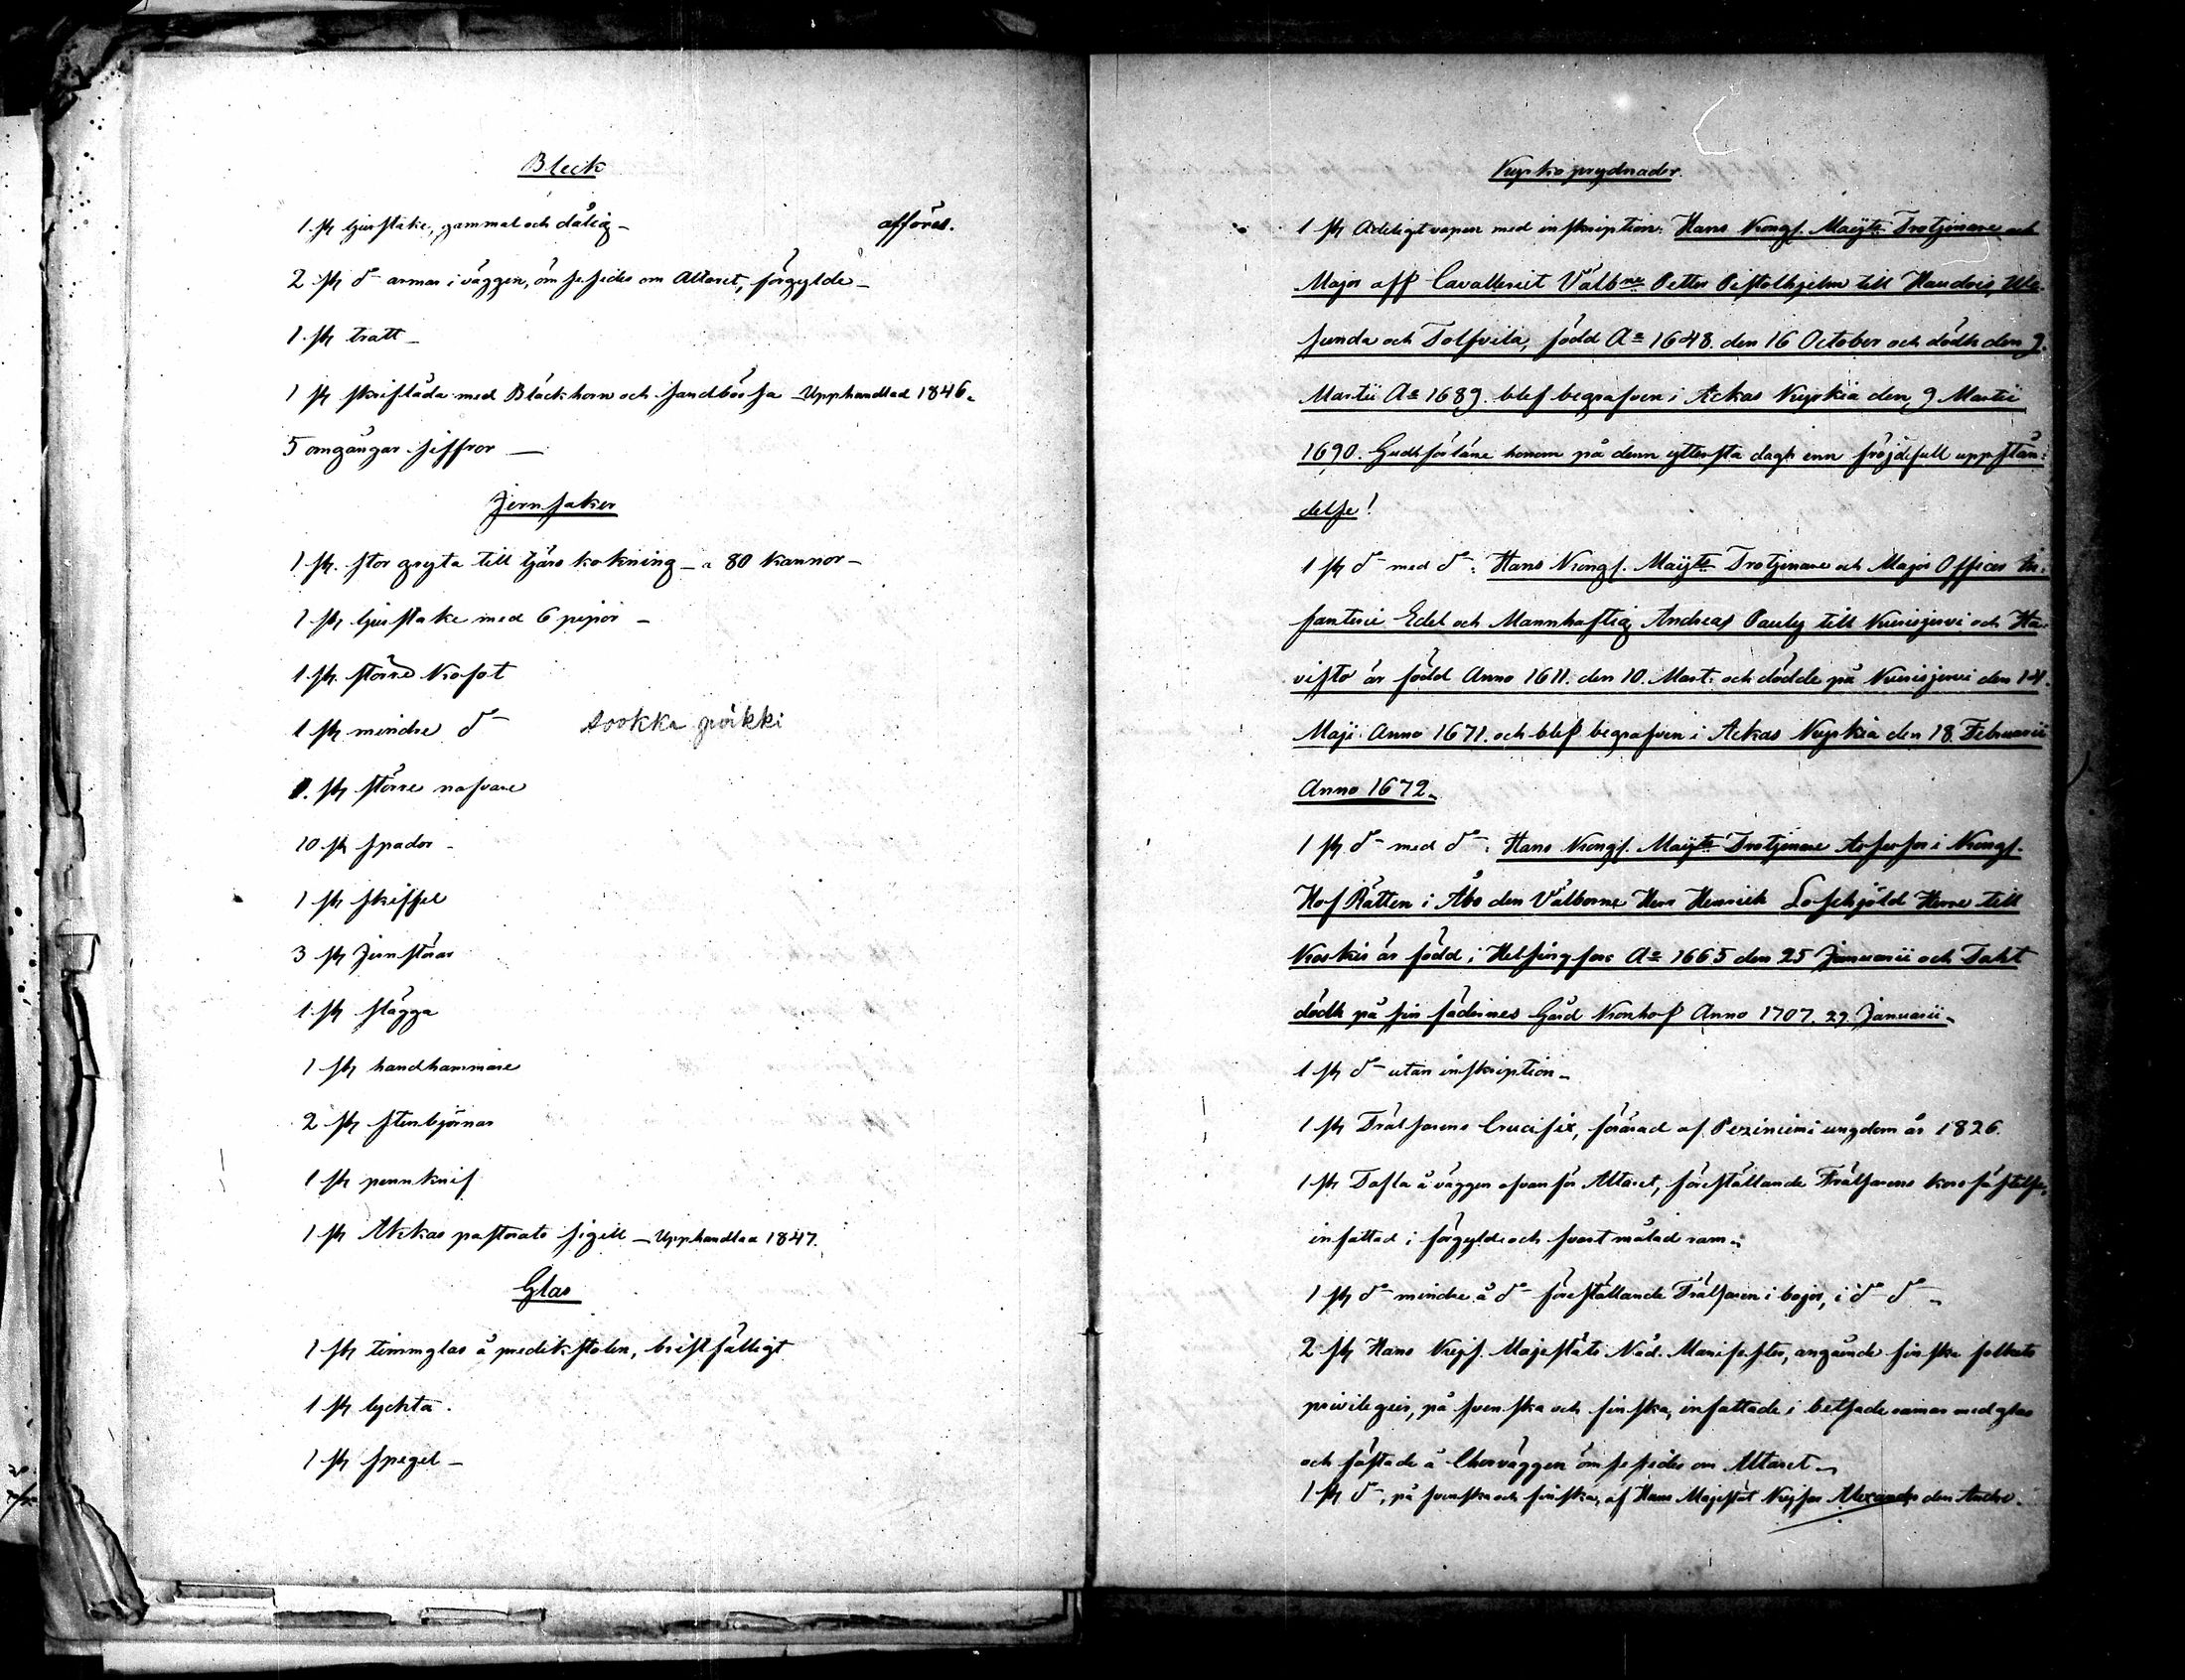 Bleck
1 st ljusstake, gammal och dålig - afföres.
2 st d:o armar i väggen, ömse sides om Altaret, förgylde -
1 st tratt -
1 st skriflåda med Bläckhorn och sandbössa - Upphandlad 1846.
5 omgångar siffror -
Jernsaker
1 st. stor gryta till tjärs kokning - a 80 kannor -
1 st ljusstake med 6 pipor -
1 st. större Kofot
1 st mindre d:o sookka puikki
1. st större nafvare
10 st spador -
1 st skiffel
3 st Jernstörar
1 st slägga
1 st handhammare
2 st stenbjörnar
1 st pennknif
1 st Akkas pastorats sigill - Upphandlad 1847.
Glas
1 st timmglas å predikstolen, bristfälligt
1 st lyckta.
1 st spegel -
Kyrkoprydnader.
1 st Adeligt vapen med inskription: Hans Kongl. Maij:ts Trotjenare och
Major aff Cavalleriet Välb:ne Petter Pistolhjelm till Haudois, Ule-
sunda och Tolfvila, född A:o 1648. den 16 October och dödh den 9.
Martii A:o 1689. blef begrafven i Ackas Kyrkia den 9 Martii
1690. Gudh förläne honom på denn yttersta dagh enn fröjdefull uppstån-
delse!
1 st d:o med d:o: Hans Kongl. Maij:ts Trotjenare och Major Officer In-
fanterie Edel och Mannhaftig Andreas Pauly till Kurisjervi och Ha-
visto är född Anno 1611. den 10. Mart. och dödde på Kurisjervi den 14.
Maji Anno 1671. och blef begrafven i Ackas Kyrkia den 18. Februarii
Anno 1672.
1 st d:o med d:o: Hans Kongl. Maij:ts Trotjenare Assessor i Kongl.
Hof Rätten i Åbo den Välborne Herr Henrich Loschjöld Herre till
Koskis är född i Helsingfors A:o 1665 den 25 Januarii och Dahl
dödh på sin fädernes Gård Kronhof Anno 1707. 29 Januarii.
1 st d:o utan inskription -
1 st Frälsarens Crucifix, förärad af Pezinieni ungdom år 1826.
1 st Tafla å väggen ofvanför Altaret, föreställande Frälsarens korsfästelse,
infattad i förgyld och svart målad ram -
1 st d:o mindre å d:o föreställande Frälsaren i bojor, i d:o d:o -
2 st Hans Kejs. Majestäts Nåd. Manifester, angående finska folkets
privilegier, på svenska och finska, infattade i betsade ramar med glas
och fästade å Chorväggen ömse sides om Altaret -
1 st d:o, på svenska och finska, af Hans Majestät Kejsar Alexander den Andre.